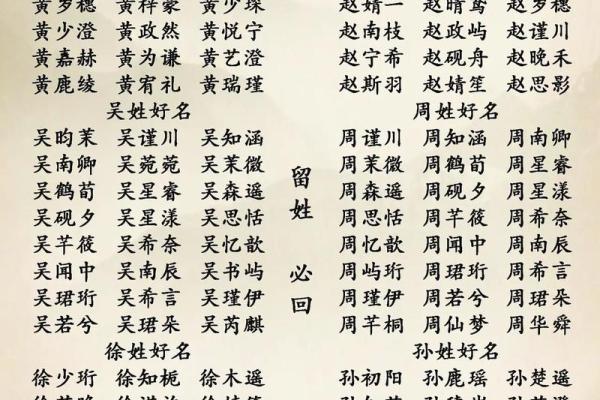 黄梦穗 黄梓豪 黄少琛 赵婧一 赵晴鸢 赵罗穗
黄少澄 黄政然 黄悦宁 赵南枝 赵政屿 赵谨川
黄嘉赫 黄为谦 黄艺澄 赵宁希 赵砚舟 赵晚禾
黄鹿绫 黄宥礼 黄瑞瑾 赵斯羽 赵婧笙 赵思影
吴姓好名 周姓好名
吴昀茉 吴谨川 吴知涵 周谨川 周知涵 周南卿
吴南卿 吴菀菀 吴茉微 周茉微 周鹤荀 周星睿
吴鹤荀 吴星睿 吴森遥 周森遥 周砚夕 周星漾
吴砚夕 吴星漾 吴思恬 周思恬 周芊筱 周希奈
吴芊筱 吴希奈 吴忆歆 周忆歆 周闻中 周南辰
吴闻中 吴南辰 吴书屿 周屿珩 周珺珩 周希言
吴珺珩 吴希言 吴瑾伊 周瑾伊 周若兮 周珺朵
吴若兮 吴珺朵 吴芮麒 周芊桐 周仙梦 周华舜
留姓 必回
徐姓好名 孙姓好名
徐少珩 徐知栀 徐木遥 孙初阳 孙鹿瑶 孙楚遥